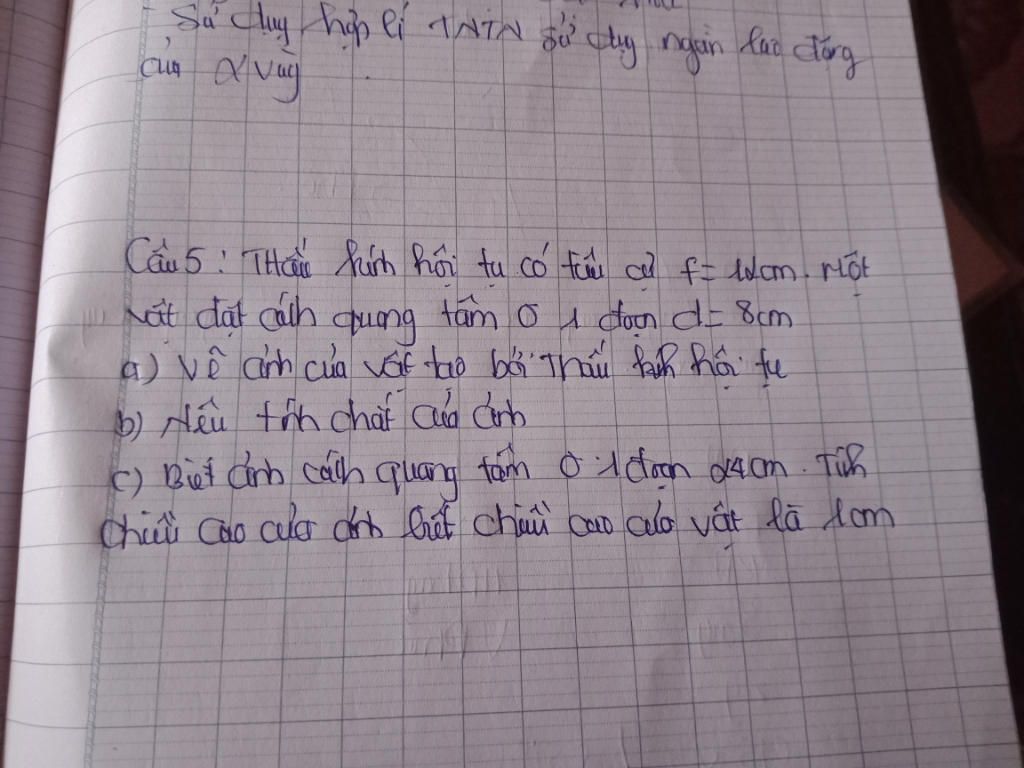 - Sử dụng hợp lí TNTN sử dụng ngàn lao động
của vùng
Câu 5: Thấu kính hội tụ có tiêu cự f = 12cm. Một
vật đặt cách quang tâm O 1 đoạn d = 8cm
a) Vẽ ảnh của vật tạo bởi Thấu kính hội tụ
b) Nêu tính chất của ảnh
c) Biết ảnh cách quang tâm O 1 đoạn 24cm. Tính
chiều cao của ảnh biết chiều cao của vật là 1cm